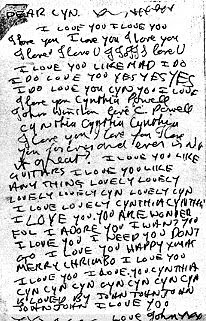 DEAR CYN.
I LOVE YOU I LOVE YOU
I love you I love you I love you
I love U I love U I love U
I LOVE YOU LIKE MAD I DO
I DO LOVE YOU YES YES YES
I DO LOVE YOU CYN YOU I LOVE
I love you Cynthia Powell
John Winston love C. Powell
CYNTHIA Cynthia Cynthia
I love you I love you I love
you forever and ever isn't
it great? I LOVE YOU LIKE
GUITARS I LOVE YOU LIKE
ANY THING LOVELY LOVELY
LOVELY LOVELY CYN LOVELY CYN
I LOVE LOVELY CYNTHIA CYNTHIA
I LOVE YOU. YOU ARE WONDER
FUL I ADORE YOU I WANT YOU
I LOVE YOU I NEED YOU DON'T
GO I LOVE YOU HAPPY XMAS
MERRY CHRIMBO I LOVE YOU
I LOVE YOU I LOVE. YOU. CYNTHIA
CYN CYN CYN CYN CYN CYN CYN
IS LOVED BY JOHN JOHN JOHN
JOHN JOHN I LOVE YOU
LOVE John